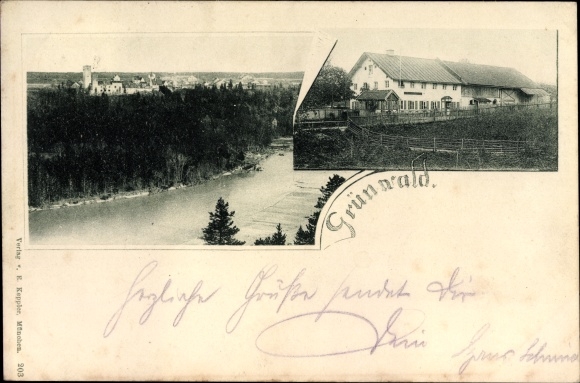 Grünwald.
Herzliche Grüße sendet Dir
Dein
Hans
Verlag v. E. Keppler, München. 203